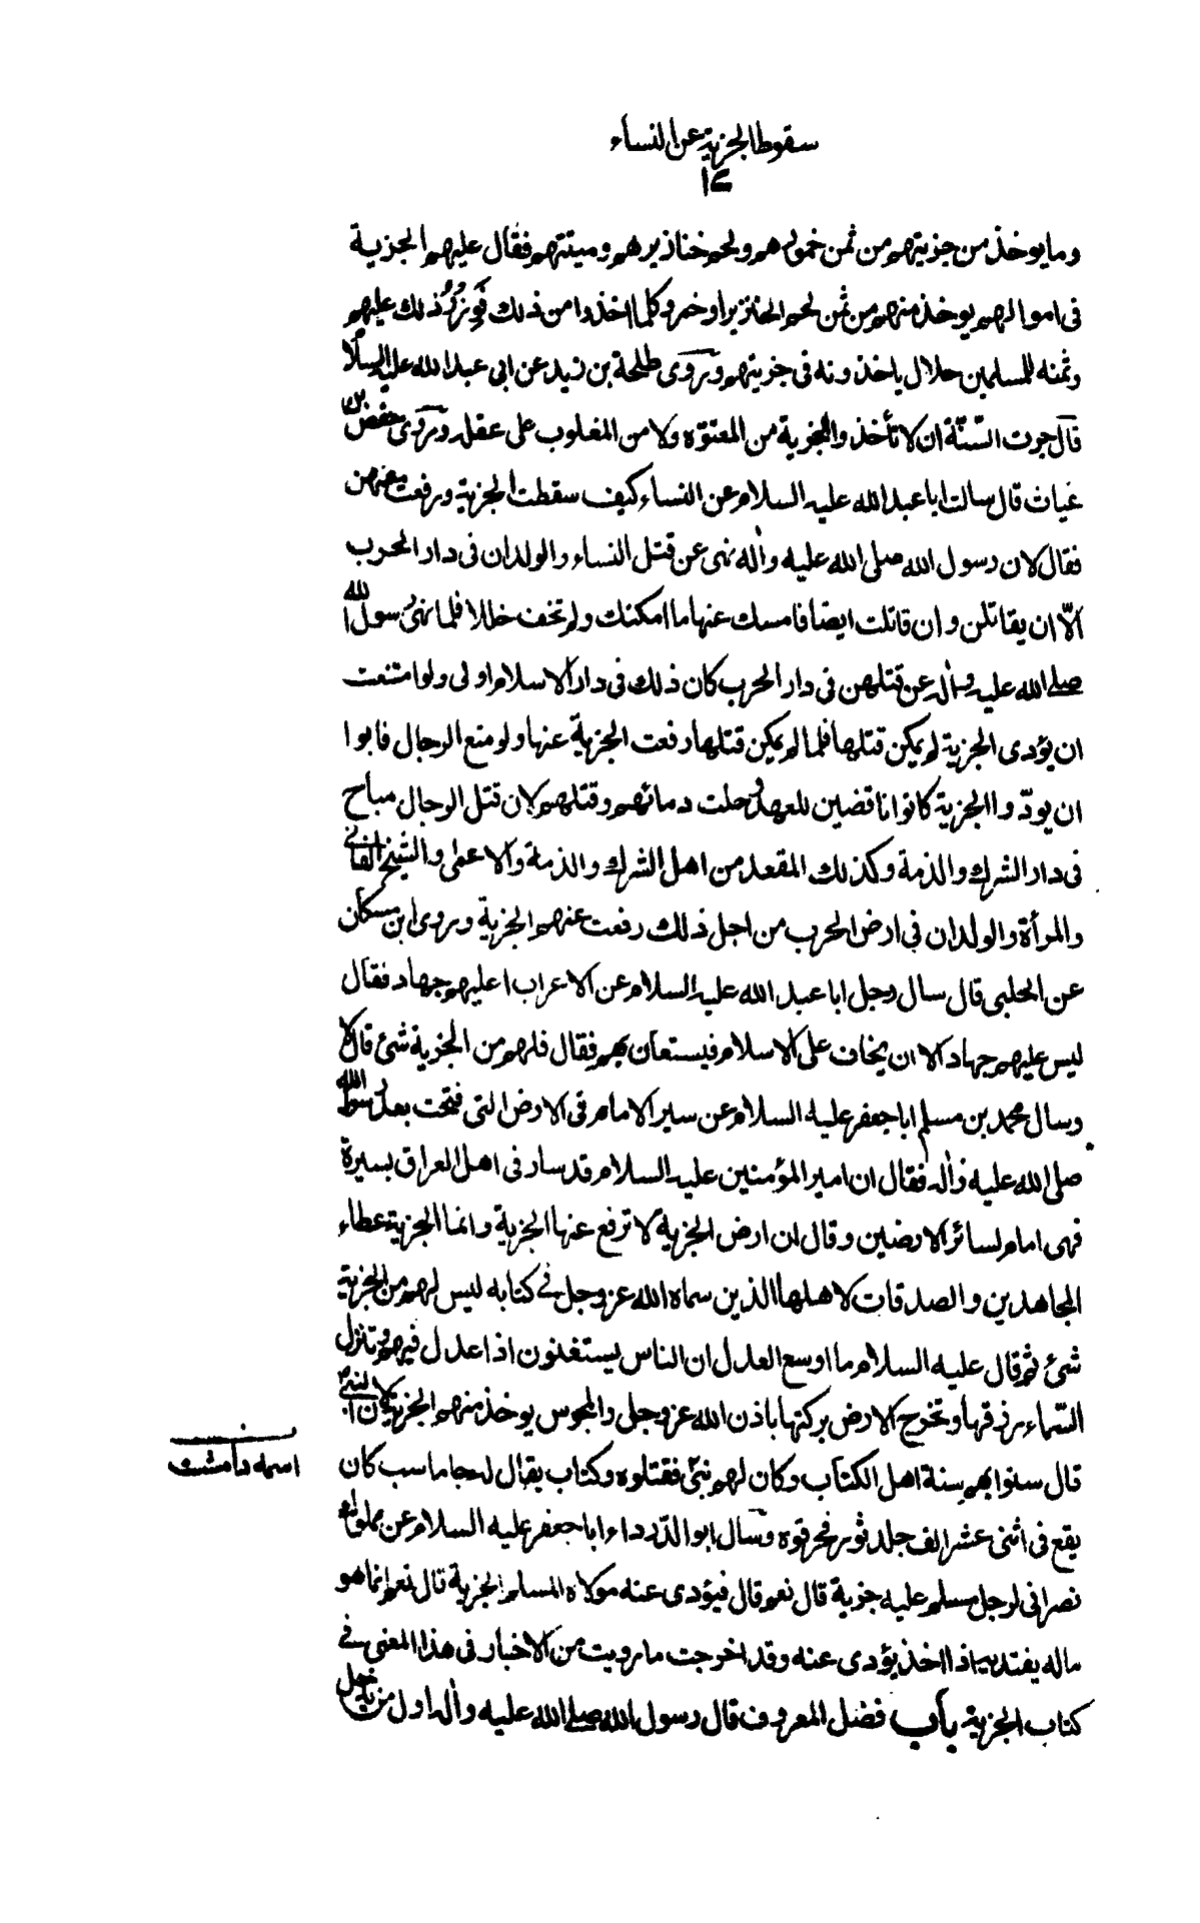 سقوط الجزية عن النساء
١٢
وما يوخذ من جزيتهم من ثمن خمورهم ولحم خنازيرهم وميتتهم فقال عليهم الجزية
فى اموالهم يوخذ منهم من ثمن لحم الخنزير او خمر وكلما اخذوا من ذلك فوزر ذلك عليهم
وثمنه للمسلمين حلال ياخذونه فى جزيتهم وروى طلحة بن زيد عن ابى عبدالله عليه السلام
قال جرت السّنّة ان لا تأخذوا الجزية من المعتوّه ولا من المغلوب على عقله وروى حفص بن
غياث قال سالت ابا عبدالله عليه السلام عن النساء كيف سقطت الجزية ورفعت عنهن
فقال لان رسول الله صلى الله عليه واله نهى عن قتل النساء والولدان فى دار الحرب
الّا ان يقاتلن وان قاتلت ايضا فامسك عنها ما امكنك ولم تخف خللا فلما نهى رسول الله
صلى الله عليه واله عن قتلهن فى دار الحرب كان ذلك فى دار الاسلام اولى ولو امتنعت
ان يؤدى الجزية لم يمكن قتلها فلما لم يمكن قتلها رفعت الجزية عنها ولو منع الرجال فابوا
ان يودّوا الجزية كانوا ناقضين للعهد وحلت دمائهم وقتلهم لان قتل الرجال مباح
فى دار الشرك والذمة وكذلك المقعد من اهل الشرك والذمة والاعمى والشيخ الفانى
والمرأة والولدان فى ارض الحرب من اجل ذلك رفعت عنهم الجزية وروى ابن مسكان
عن الحلبى قال سال رجل ابا عبدالله عليه السلام عن الاعراب اعليهم جهاد فقال
ليس عليهم جهاد الا ان يخاف على الاسلام فيستعان بهم فقال فلهم من الجزية شئ قال لا
وسال محمد بن مسلم ابا جعفر عليه السلام عن سير الامام فى الارض التى فتحت بعد رسول الله
صلى الله عليه واله فقال ان امير المؤمنين عليه السلام قد سار فى اهل العراق بسيرة
فهى امام لسائر الارضين وقال ان ارض الجزية لا ترفع عنها الجزية وانما الجزية عطاء
المجاهدين والصدقات لاهلها الذين سماه الله عزوجل فى كتابه ليس لهم من الجزية
شئ ثم قال عليه السلام ما اوسع العدل ان الناس يستغنون اذا عدل فيهم وتنزل
السّماء رزقها وتخرج الارض بركتها باذن الله عزوجل والمجوس يوخذ منهم الجزية لان النبى ص
قال سنوا بهم سنة اهل الكتاب وكان لهم نبىّ فقتلوه وكتاب يقال له جاماسب كان
اسمه دامشت
يقع فى اثنى عشر الف جلد ثور فحرقوه وسال ابو الدّرداء ابا جعفر عليه السلام عن مملوك
نصرانى لرجل مسلم عليه جزية قال نعم قال فيؤدى عنه مولاه المسلم الجزية قال نعم انما هو
ماله يفتديه اذا اخذ يؤدى عنه وقد اخرجت ما رويت من الاخبار فى هذا المعنى فى
كتاب الجزية باب فضل المعروف قال رسول الله صلى الله عليه واله اول من يدخل